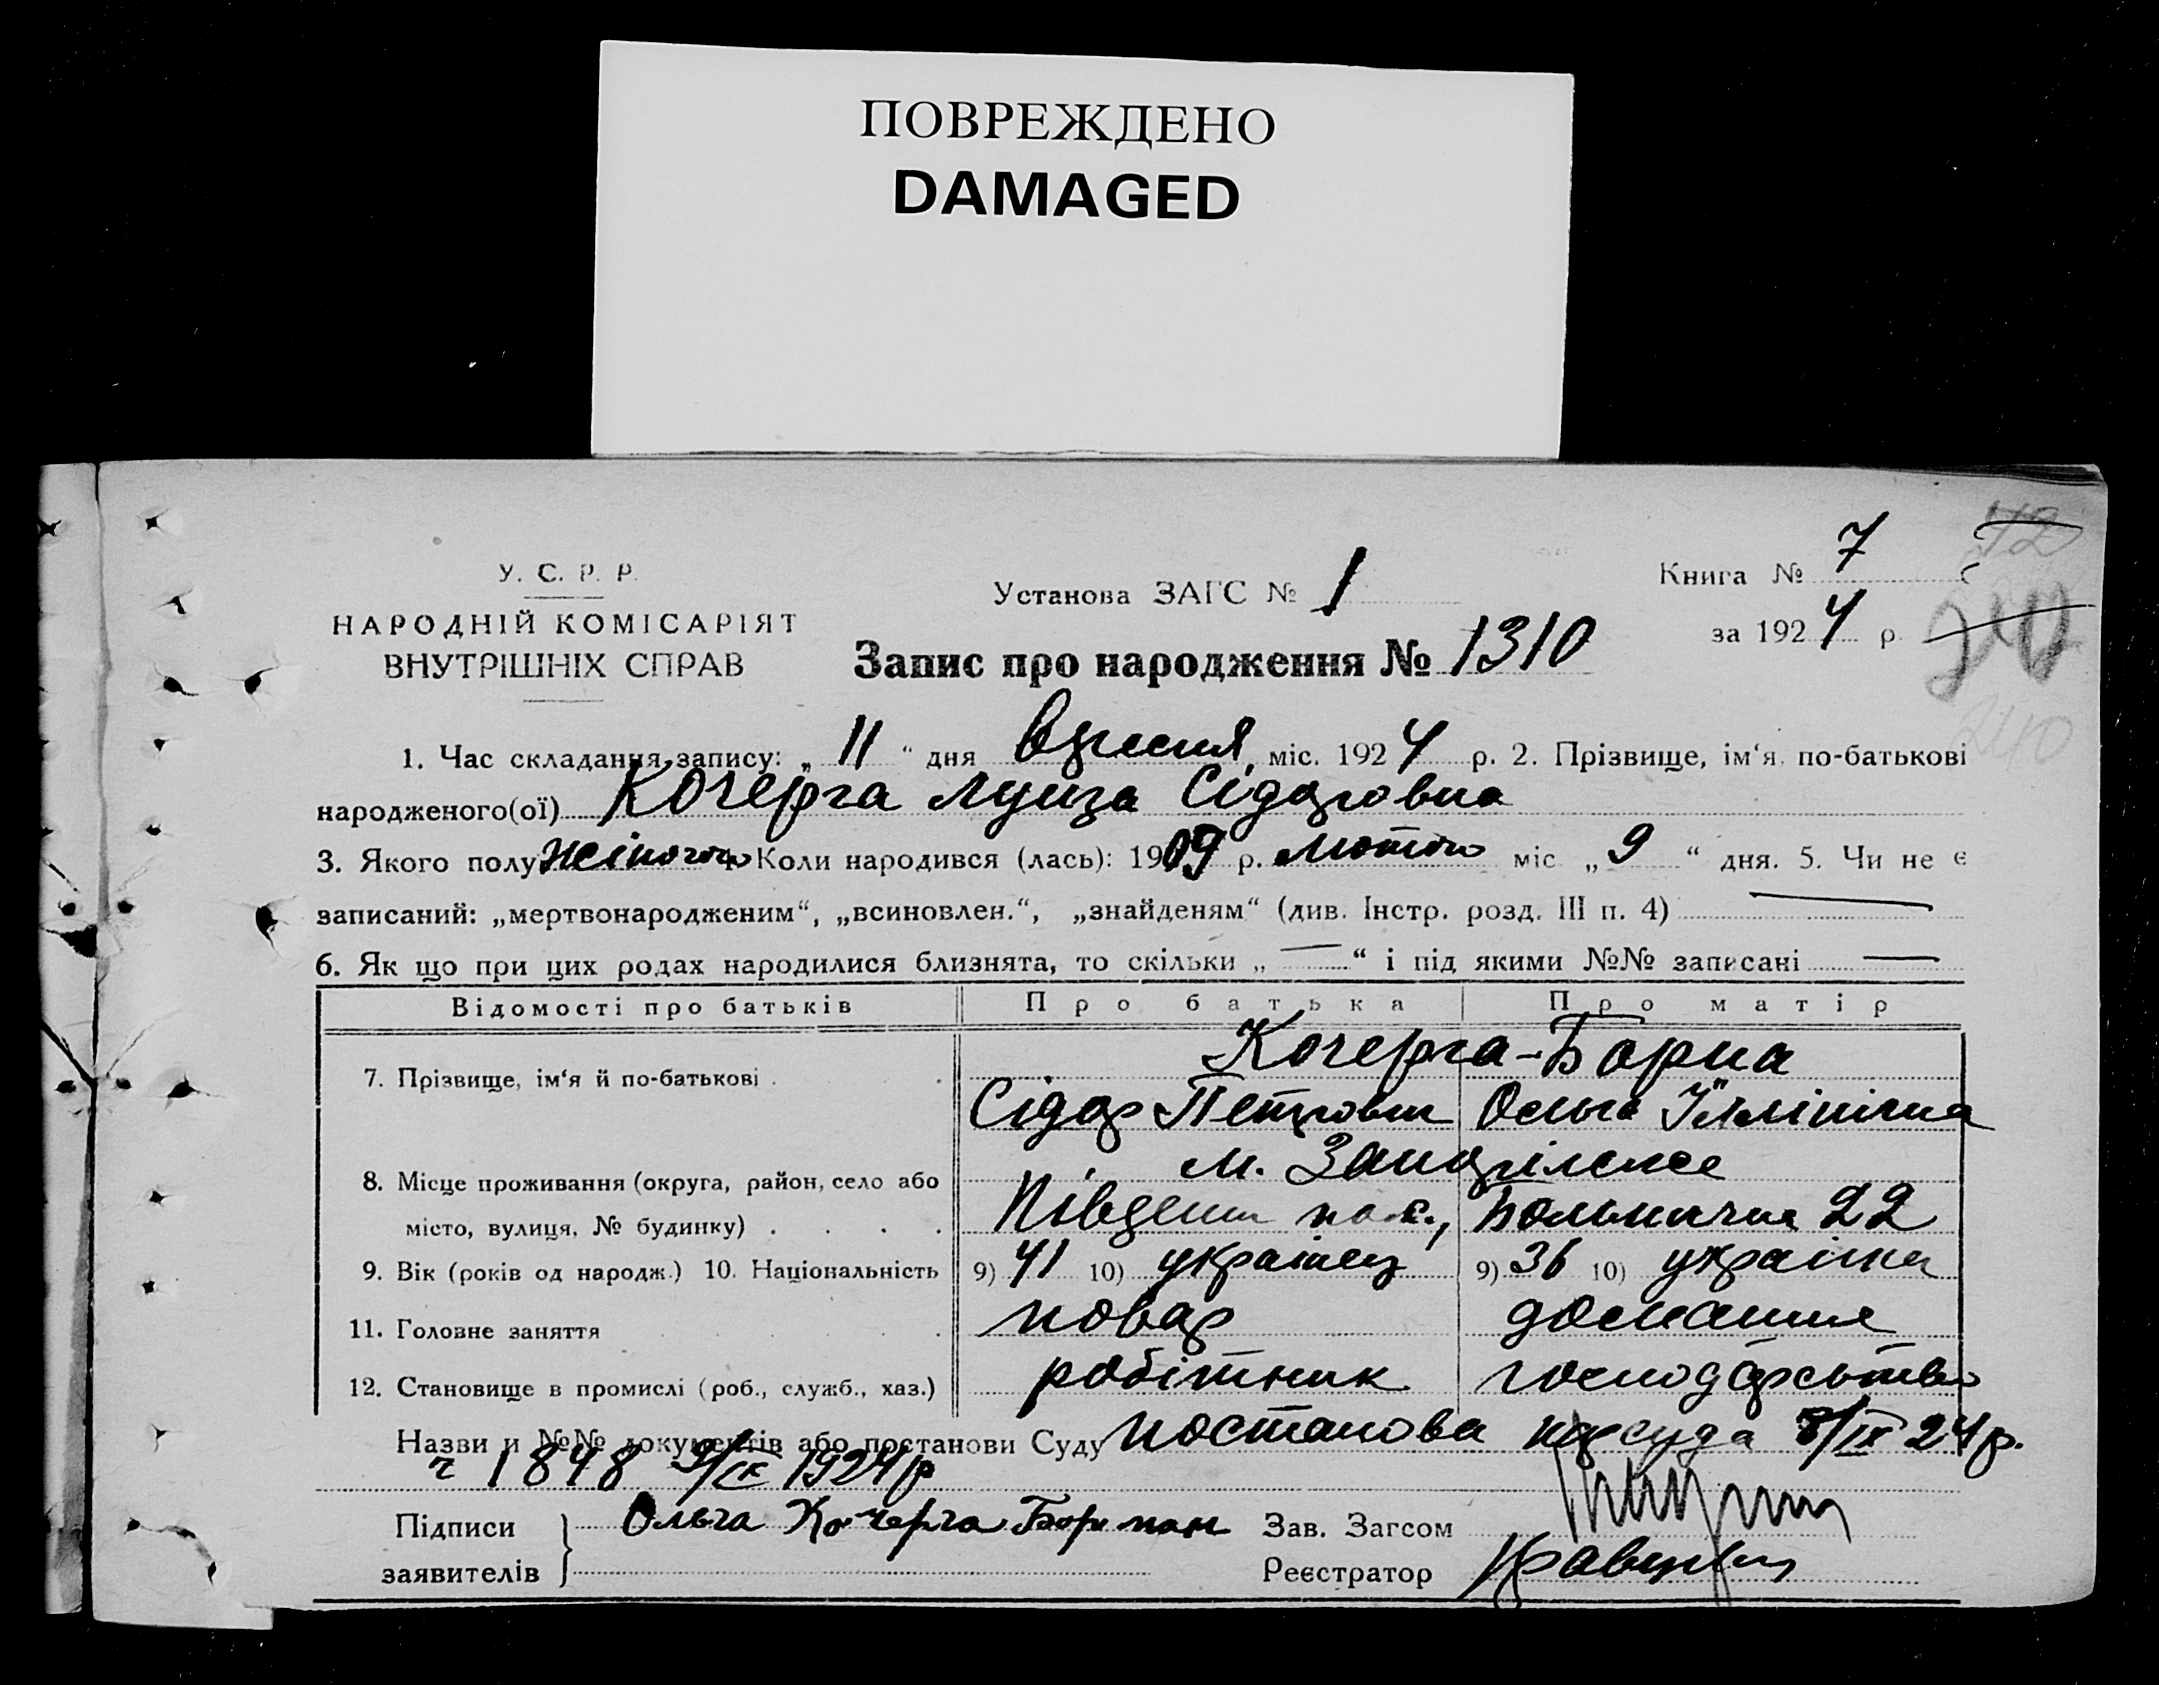 ПОВРЕЖДЕНО
DAMAGED
У. С. Р. Р.
НАРОДНІЙ КОМІСАРІЯТ
ВНУТРІШНІХ СПРАВ
Установа ЗАГС № 1
Запис про народження № 1310
Книга № 7
за 1924 р.
42
240
240
1. Час складання запису: „ 11 “ дня вересня міс. 1924 р. 2. Прізвище, ім‘я, по-батькові
народженого(ої) Кочерга Луиза Сідоровна
3. Якого полу жіночого 4. Коли народився (лась): 1909 р. лютого міс „ 9 “ дня. 5. Чи не є
записаний: „мертвонародженим“, „всиновлен.“, „знайденям“ (див. Інстр. розд. III п. 4) —
6. Як що при цих родах народилися близнята, то скільки „ — “ і під якими №№ записані —
Відомості про батьків Про батька Про матір
Кочерга-
7. Прізвище, ім‘я й по-батькові .
Сідор Петрович Ольга
м.
8. Місце проживання (округа, район, село або
місто, вулиця, № будинку) . . . . Больнична 22
9. Вік (років од народж.) 10. Національність 9) 41 10) українец 9) 36 10) українка
11. Головне заняття повар домашне
12. Становище в промислі (роб., служб., хаз.) робітник господарьство
Назви и №№ документів або постанови Суду постанова нарсуда 8/IX 24 р.
ч 1848 9/IX 1924 р
Підписи
заявителів
Ольга Кочерга
Зав. Загсом
Реєстратор